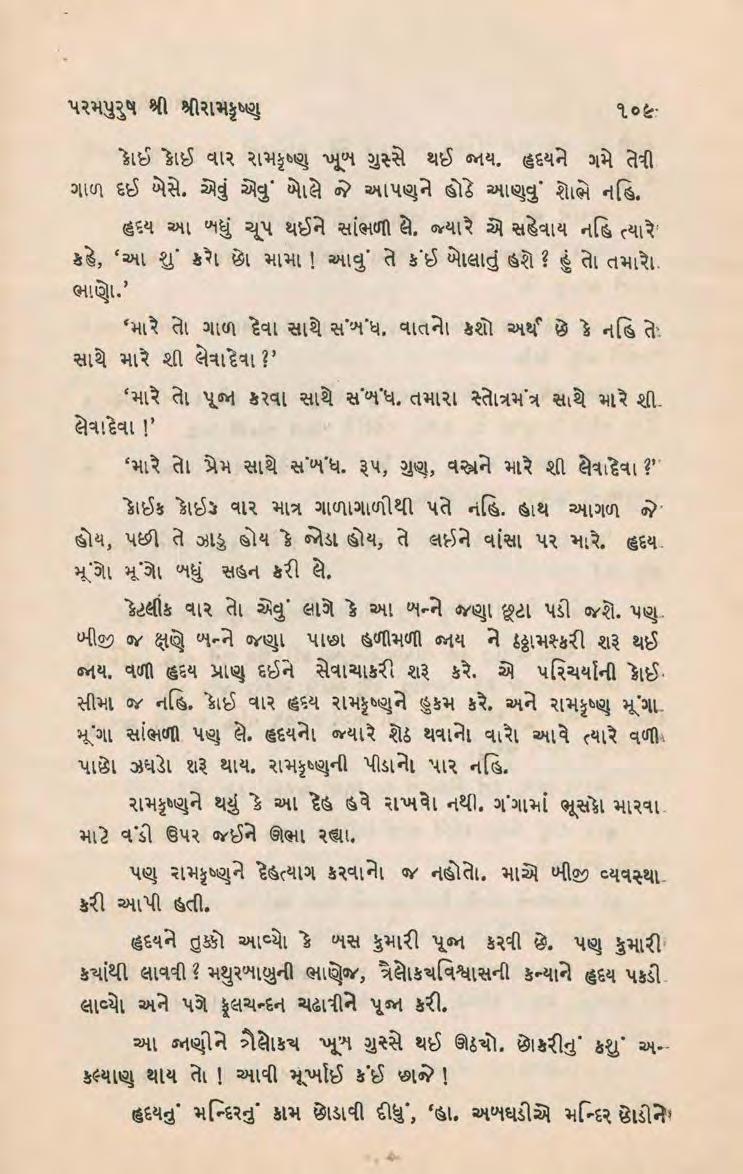 પરમપુરુષ શ્રી શ્રીરામકૃષ્ણ ૧૦૯
કોઈ કોઈ વાર રામકૃષ્ણ ખૂબ ગુસ્સે થઈ જાય. હૃદયને ગમે તેવી
ગાળ દઈ બેસે. એવું એવું બોલે જે આપણને હોઠે આણવું શોભે નહિ.
હૃદય આ બધું ચૂપ થઈને સાંભળી લે. જ્યારે એ સહેવાય નહિ ત્યારે
કહે, ‘આ શું કરો છો મામા ! આવું તે કંઈ બોલાતું હશે ? હું તો તમારો
ભાણો.’
‘મારે તો ગાળ દેવા સાથે સંબંધ. વાતનો કશો અર્થ છે કે નહિ તે
સાથે મારે શી લેવાદેવા ?’
‘મારે તો પૂજા કરવા સાથે સંબંધ. તમારા સ્તોત્રમંત્ર સાથે મારે શી
લેવાદેવા !’
‘મારે તો પ્રેમ સાથે સંબંધ. રૂપ, ગુણ, વસ્ત્રને મારે શી લેવાદેવા ?’
કોઈક કોઈક વાર માત્ર ગાળાગાળીથી પતે નહિ. હાથ આગળ જે
હોય, પછી તે ઝાડુ હોય કે જોડા હોય, તે લઈને વાંસા પર મારે. હૃદય
મૂંગો મૂંગો બધું સહન કરી લે.
કેટલીક વાર તો એવું લાગે કે આ બન્ને જણા છૂટા પડી જશે. પણ
બીજી જ ક્ષણે બન્ને જણા પાછા હળીમળી જાય ને ઠઠ્ઠામશ્કરી શરૂ થઈ
જાય. વળી હૃદય પ્રાણ દઈને સેવાચાકરી શરૂ કરે. એ પરિચર્યાની કોઈ
સીમા જ નહિ. કોઈ વાર હૃદય રામકૃષ્ણને હુકમ કરે. અને રામકૃષ્ણ મૂંગા
મૂંગા સાંભળી પણ લે. હૃદયનો જ્યારે શેઠ થવાનો વારો આવે ત્યારે વળી
પાછો ઝઘડો શરૂ થાય. રામકૃષ્ણની પીડાનો પાર નહિ.
રામકૃષ્ણને થયું કે આ દેહ હવે રાખવો નથી. ગંગામાં ભૂસકો મારવા
માટે વંડી ઉપર જઈને ઊભા રહ્યા.
પણ રામકૃષ્ણને દેહત્યાગ કરવાનો જ નહોતો. માએ બીજી વ્યવસ્થા
કરી આપી હતી.
હૃદયને તુક્કો આવ્યો કે બસ કુમારી પૂજા કરવી છે. પણ કુમારી
કયાંથી લાવવી ? મથુરબાબુની ભાણેજ, ત્રૈલોકયવિશ્વાસની કન્યાને હૃદય પકડી
લાવ્યો અને પગે ફૂલચન્દન ચઢાવીને પૂજા કરી.
આ જાણીને ત્રૈલોકય ખૂબ ગુસ્સે થઈ ઊઠયો. છોકરીનું કશું અ-
કલ્યાણ થાય તો ! આવી મૂર્ખાઈ કંઈ છાજે !
હૃદયનું મન્દિરનું કામ છોડાવી દીધું, ‘હા. અબઘડીએ મન્દિર છોડીને